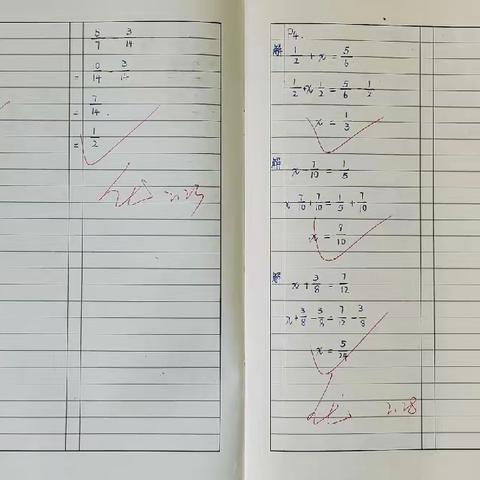 5/7 3/14
= 10/14 3/14
= 7/14.
= 1/2
2.23
P4.
解 1/2 + x = 5/6
1/2 + x 1/2 = 5/6 - 1/2
x = 1/3
解 x - 7/10 = 1/5
x 7/10 + 7/10 = 1/5 + 7/10
x = 9/10
解 x + 3/8 = 7/12
x + 3/8 - 3/8 = 7/12 - 3/8
x = 5/24
2.28